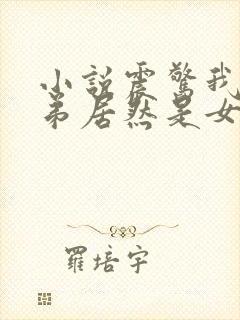 小説震驚我
弟居然是女
羅培宇